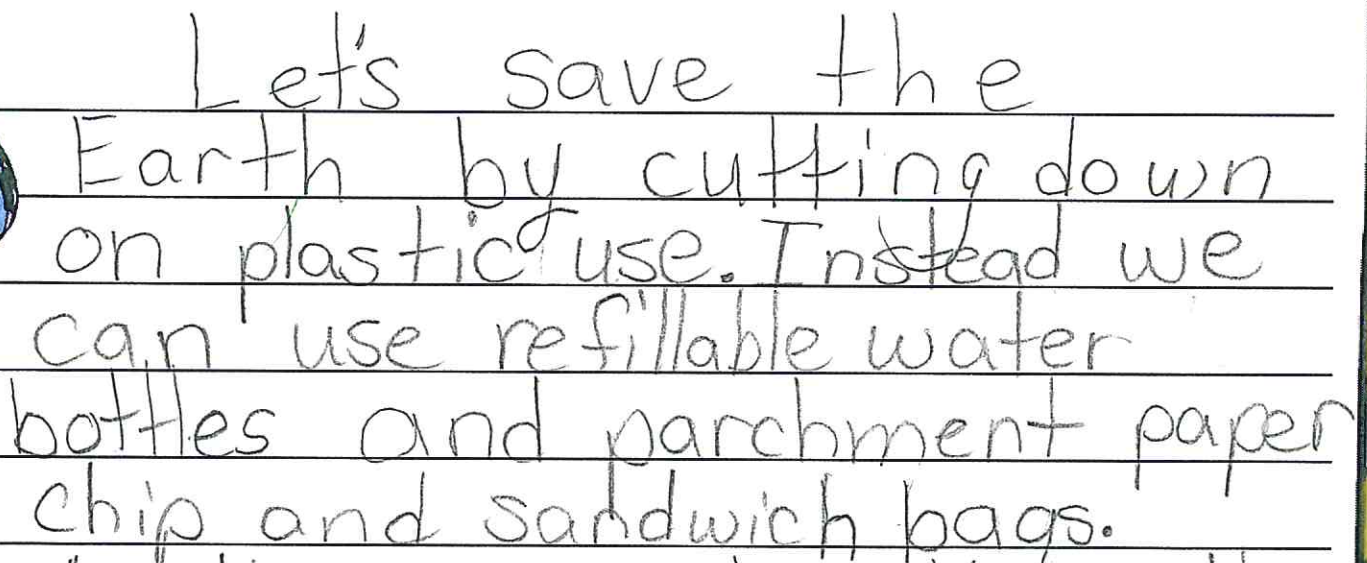 Let's save the
Earth by cutting down
on plastic use. Instead we
can use refillable water
bottles and parchment paper
chip and sandwich bags.